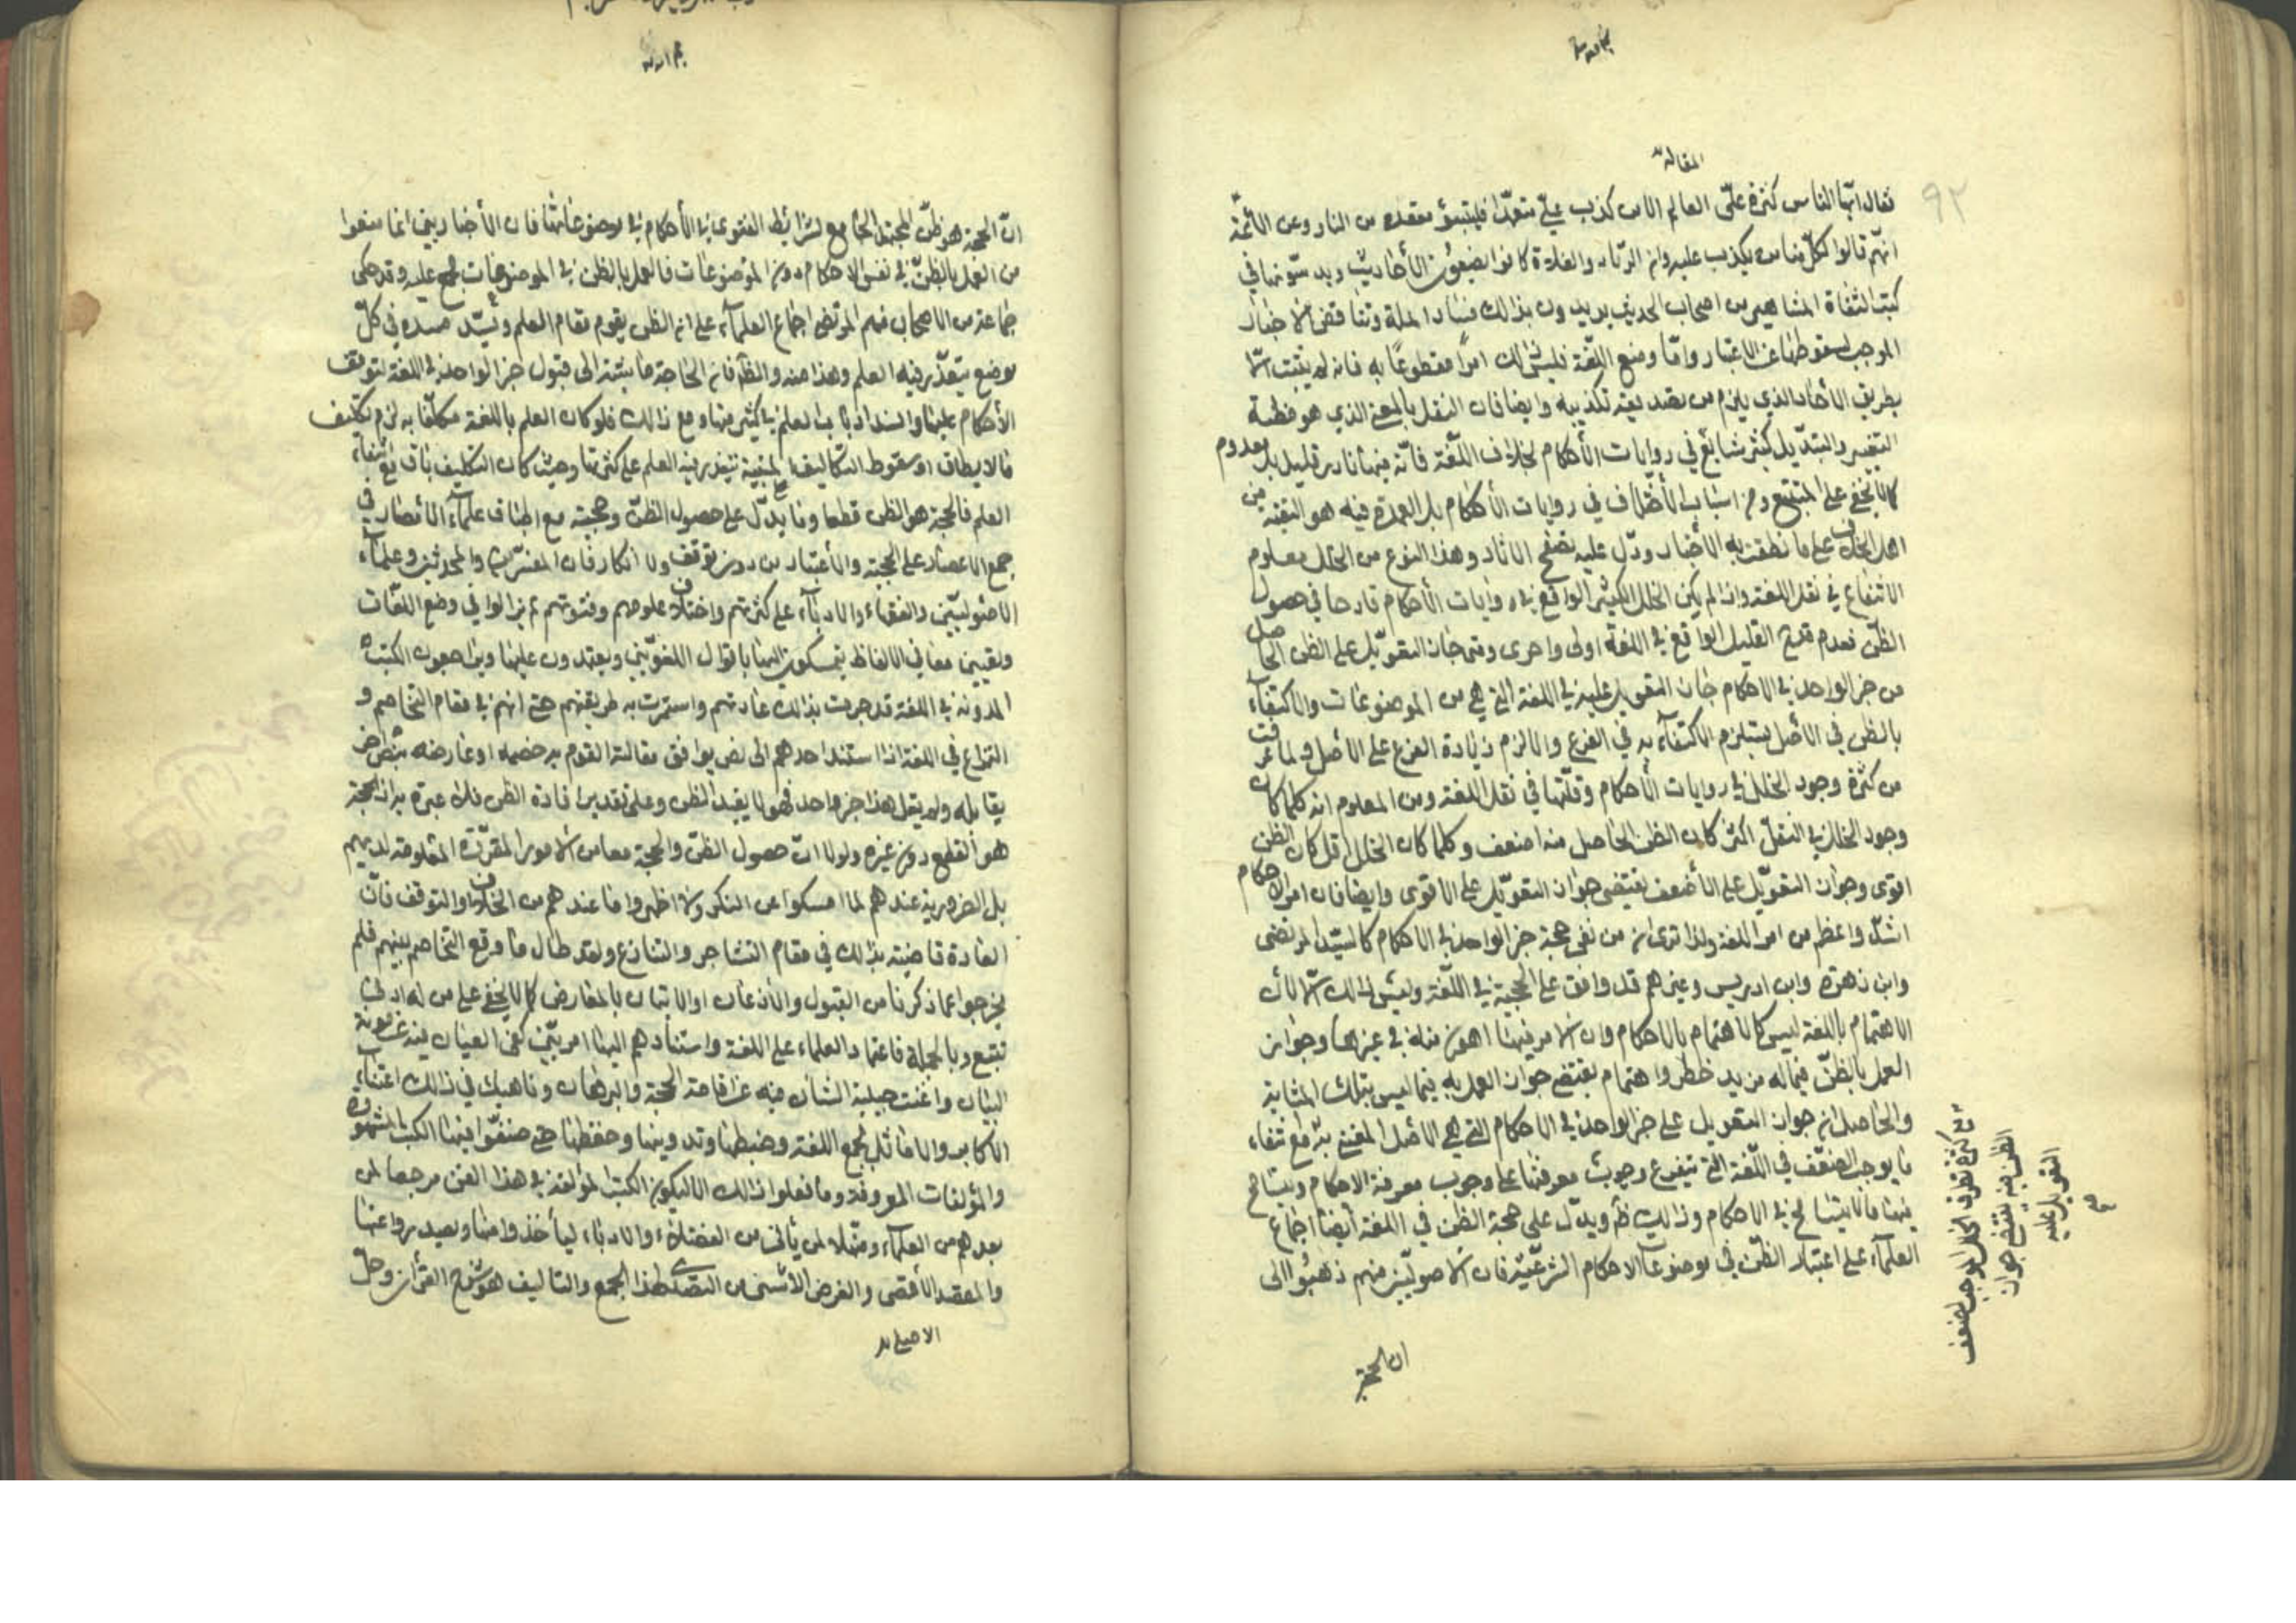 ٩٢
المقالة
فقال ايّها الناس كثرة علىّ العالم الا من كذب علىّ متعمّدا فليتبوّء مقعده من النار وعن الائمّة
انّهم قالوا لكلّ منا من يكذب عليه وان الزنادقة والغلاة كانوا يضيعون الأحاديث ويدسّونها في
كتب الثقاة المشاهير من اصحاب الحديث يريدون بذالك فساد الملة وتناقض الاخبار
الموجب لسقوطها عن الاعتبار وامّا وضع اللّغة فليس ذالك امرًا مقطوعًا به فانه لم يثبت الّا
بطريق الأحاد الذي يلزم من تصديقه تكذيبه وايضا فان النقل بالمعنى الذي هو مظنة
التغيير والتبدّيل كثير شايع في روايات الأحكام بخلاف اللّغة فانّه فيها نادر قليل بل معدوم
كما لا يخفى على المتتبع ومن اسباب الأختلاف في روايات الأحكام بل العمدة فيه هو التقيّة من
اهل الخلاف على ما نطقت به الأخبار ودلّ عليه تصفح الاثار وهذا النوع من الخلل معلوم
الانتفاء في نقل اللغة واذا لم يكن الخلل الكثير الواقع في روايات الأحكام قادحا في حصول
الظنّ فعدم قدح القليل الواقع في اللغة اولى واحرى ومتى جاز التعويّل على الظن الحاصل
من خبر الواحد في الاحكام جاز التعويل عليه في اللغة التي هي من الموضوعات والاكتفآء
بالظن في الأصل يستلزم الاكتفآء به في الفرع والا لزم زيادة الفرع على الاصل ولما عرفت
من كثرة وجود الخلل في روايات الأحكام وقلّتها في نقل اللغة ومن المعلوم انه كلما كان
وجود الخلل في النقل اكثر كان الظن الحاصل منه اضعف وكلما كان الخلل اقل كان الظن
اقوى وجواز التعويّل على الأضعف يقتضي جواز التعويّل على الاقوى وايضا فان امر الاحكام
اشدّ واعظم من امر اللغة ولذا ترى ان من نفى حجية خبر الواحد في الاحكام كالسيّد المرتضى
وابن زهرة وابن ادريس وغيرهم قد وافق على الحجية في اللّغة وليس ذالك الّا لأن
الاهتمام باللغة ليس كالاهتمام بالاحكام وان الامر فيها اهون منه في غيرها وجواز
العمل بالظنّ فيما له مزيد خطر واهتمام يقتضي جواز العمل به فيما ليس بتلك المثابة
والحاصل ان جواز التعويل على خبر الواحد في الاحكام التي هي الأصل
ما يوجب الضعّف في اللّغة التي يتفرع وجوب معرفتها على وجوب معرفة الاحكام ويتسامح
فيها ما لا يتسامح في الاحكام وذالك ظ ويدّل على حجية الظن في اللغة أيضا اجماع
العلمآء على اعتبار الظّن في موضوعات الاحكام الشرعّيّة فان الأصوليّين منهم ذهبوا الى
مع كثرة تطرق الخلل الموجب لضعف
الظن فيه يقتضي جواز
التعويل عليه
ان الحجة
انّ الحجة هو ظنّ المجتهد الجامع لشرائط الفتوى في الأحكام في موضوعاتها فان الأخباريين انما منعوا
من العمل بالظنّ في نفس الاحكام دون الموضوعات فالعمل بالظن في الموضوعات مجمع عليه وقد حكى
جماعة من الاصحاب منهم المرتضى اجماع العلمآء على ان الظن يقوم مقام العلم ويسّد مسده في كلّ
موضع يتعذّر فيه العلم وهذا منه والظ فان الحاجة ماسّة الى قبول خبر الواحد في اللغة لتوقف
الأحكام عليها وانسداد باب العلم في كثير منها ومع ذالك فلو كان العلم باللغة مكلّفا به لزم تكليف
ما لا يطاق او سقوط التكاليف المبنية بتعذر فيه العلم على كثرتها وحيث كان التكليف باق مع انتفاء
العلم فالحجة هو الظن قطعا ومما يدّل على حصول الظنّ وحجيته مع اطباق علمآء الأمصار في
جميع الاعصار على الحجية والأعتبار من دون توقف ولا انكار فان المفسّرين والمحدثين وعلمآء
الاصولييّن والفقهاء والادبآء على كثرتهم واختلاف علومهم وفنونهم لم يزالوا في وضع اللغّات
وتعيين معاني الالفاظ يتمسكون فيها باقوال اللغويّين ويعتمدون عليها ويراجعون الكتب
المدونه في اللغة قد جرت بذالك عادتهم واستمرت به طريقتهم حتى انهم في مقام التخاصم و
النزاع في اللغة اذا استند احدهم الى نص يوافق مقالته القوم به خصمه او عارضه بنص اخر
يقابله ولم يقل هذا خبر واحد فهو لا يفيد الظن وعلى تقدير افادة الظن فلا عبرة به اذ الحجة
هو القطع دون غيره ولولا انّ حصول الظنّ والحجية معا من الامور المقرّرة المعلومة لديهم
بل الضرورية عندهم لما امسكوا عن النكر ولا اظهروا ما عندهم من الخلاف والتوقف فانّ
العادة قاضية بذالك في مقام التشاجر والتنازع ولقد طال ما وقع التخاصم بينهم فلم
يخرجوا عما ذكرنا من القبول والأذعان او الاتيان بالمعارض كما لا يخفى على من له ادنى
تتبع وبالجملة فاعتماد العلماء على اللغة واستنادهم اليها امر بيّن كفى العيان فيه عن مؤنة
البيان واغنت جبلية الشان فيه عن اقامة الحجة والبرهان وناهيك في ذالك اعتناء
الأكابر والاماثل بجمع اللغة وضبطها وتدوينها وحفظها حتى صنفّوا فيها الكتب المشهورة
والمؤلفات المعروفة وما فعلوا ذالك الا ليكون الكتب المؤلفة في هذا الفن مرجعا لمن
بعدهم من العلمآء ومنهلا لمن يأتى من الفضلاء والادباء ليأخذوا منها ويصدروا عنها
والمقصد الأقصى والغرض الأسنى من التصدّى لهذا الجمع والتاليف هو شرح القرأن وحلّ
الاحاديث